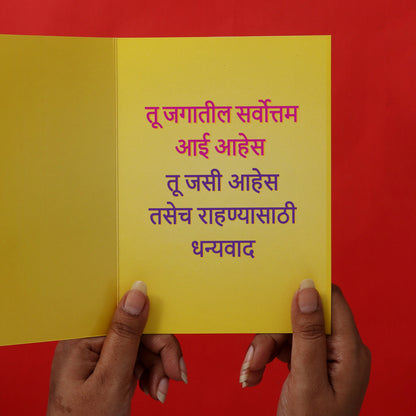 तू जगातील सर्वोत्तम
आई आहेस
तू जसी आहेस
तसेच राहण्यासाठी
धन्यवाद